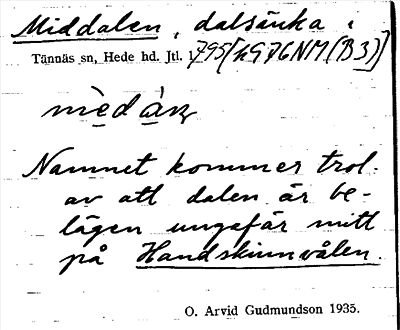 Middalen, dalsänka i
Tännäs sn, Hede hd. Jtl. 1795[hG76NM(B3)]
Namnet kommer trol.
av att dalen är be-
lägen ungefär mitt
på Handskinnvålen.
O. Arvid Gudmundson 1935.